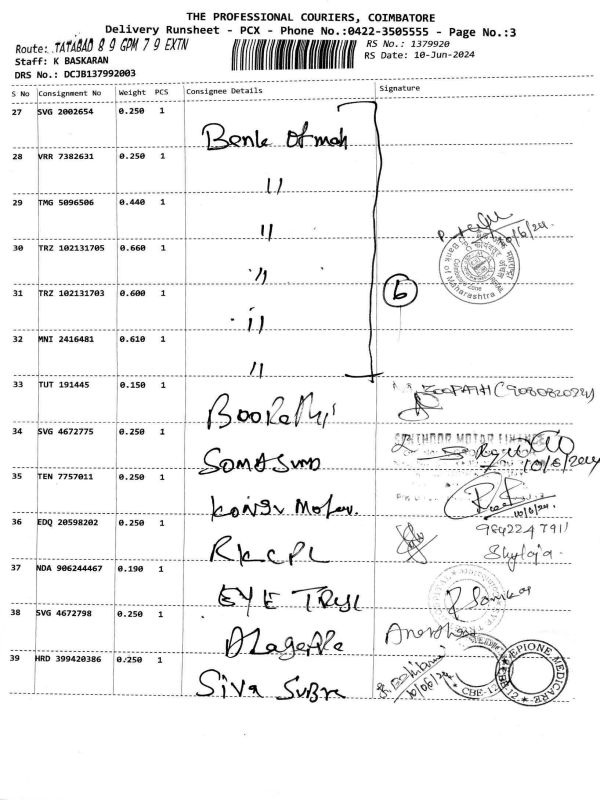 THE PROFESSIONAL COURIERS, COIMBATORE
Delivery Runsheet - PCX - Phone No.:0422-3505555 - Page No.:3
Route: TATABAD 8 9 GPM 7 9 EXTN
RS No.: 1379920
Staff: K BASKARAN
RS Date: 10-Jun-2024
DRS No.: DCJB137992003
S No Consignment No Weight PCS Consignee Details Signature
27 SVG 2002654 0.250 1 Bank Of mah
28 VRR 7382631 0.250 1 11
29 TMG 5096506 0.440 1 11
30 TRZ 102131705 0.660 1 11
10/6/24
Bank of Maharashtra
31 TRZ 102131703 0.600 1 11
6
32 MNI 2416481 0.610 1 11
33 TUT 191445 0.150 1
34 SVG 4672775 0.250 1 SOMASUND
10/6/2024
35 TEN 7757011 0.250 1
10/6/24
36 EDQ 20598202 0.250 1 RKCPL
Shylaja
37 NDA 906244467 0.190 1 EYE
38 SVG 4672798 0.250 1
39 HRD 399420386 0.250 1 Siva SuBra
10/06/24
EPIONE MEDICARE